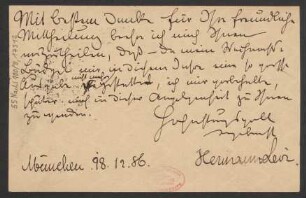 Mit bestem Danke für Ihre freundliche
Mittheilung beehre ich mich Ihnen
mitzutheilen, daß, da mein Weihnachts-
mir in diesem Jahre eine so große
Ausgabe nicht gestattet, ich mir vorbehalte,
später auf diese Angelegenheit zu Ihnen
zu
Hochachtungsvoll
ergebenst
München 98.12.86. Hermann Levi